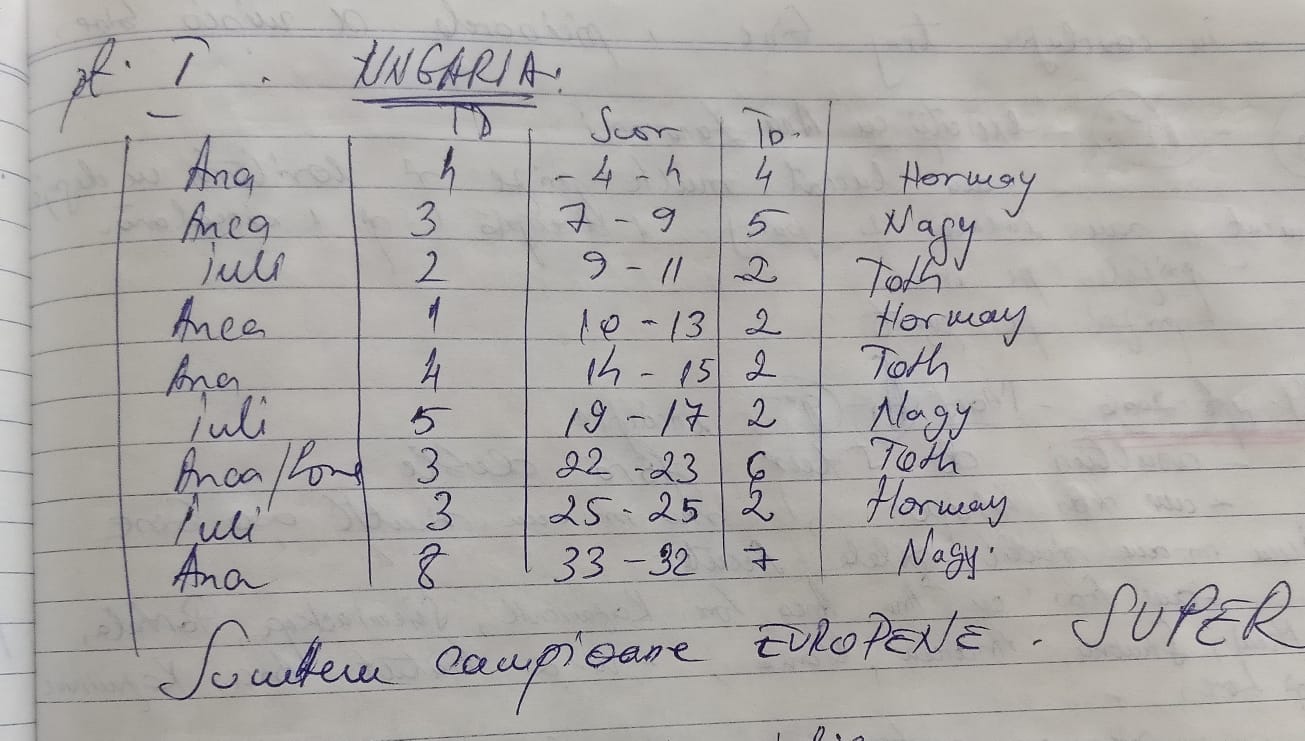 pt. I. UNGARIA.
TD Scor TD.
Ana 4 - 4 - 4 4 Horway
Anca 3 7 - 9 5 Nagy
iuli 2 9 - 11 2 Toth
Anca 1 10 - 13 2 Horway
Ana 4 14 - 15 2 Toth
iuli 5 19 - 17 2 Nagy
Anca/Lor 3 22 - 23 6 Toth
iuli 3 25 - 25 2 Horway
Ana 8 33 - 32 7 Nagy.
Suntem campioane EUROPENE. SUPER